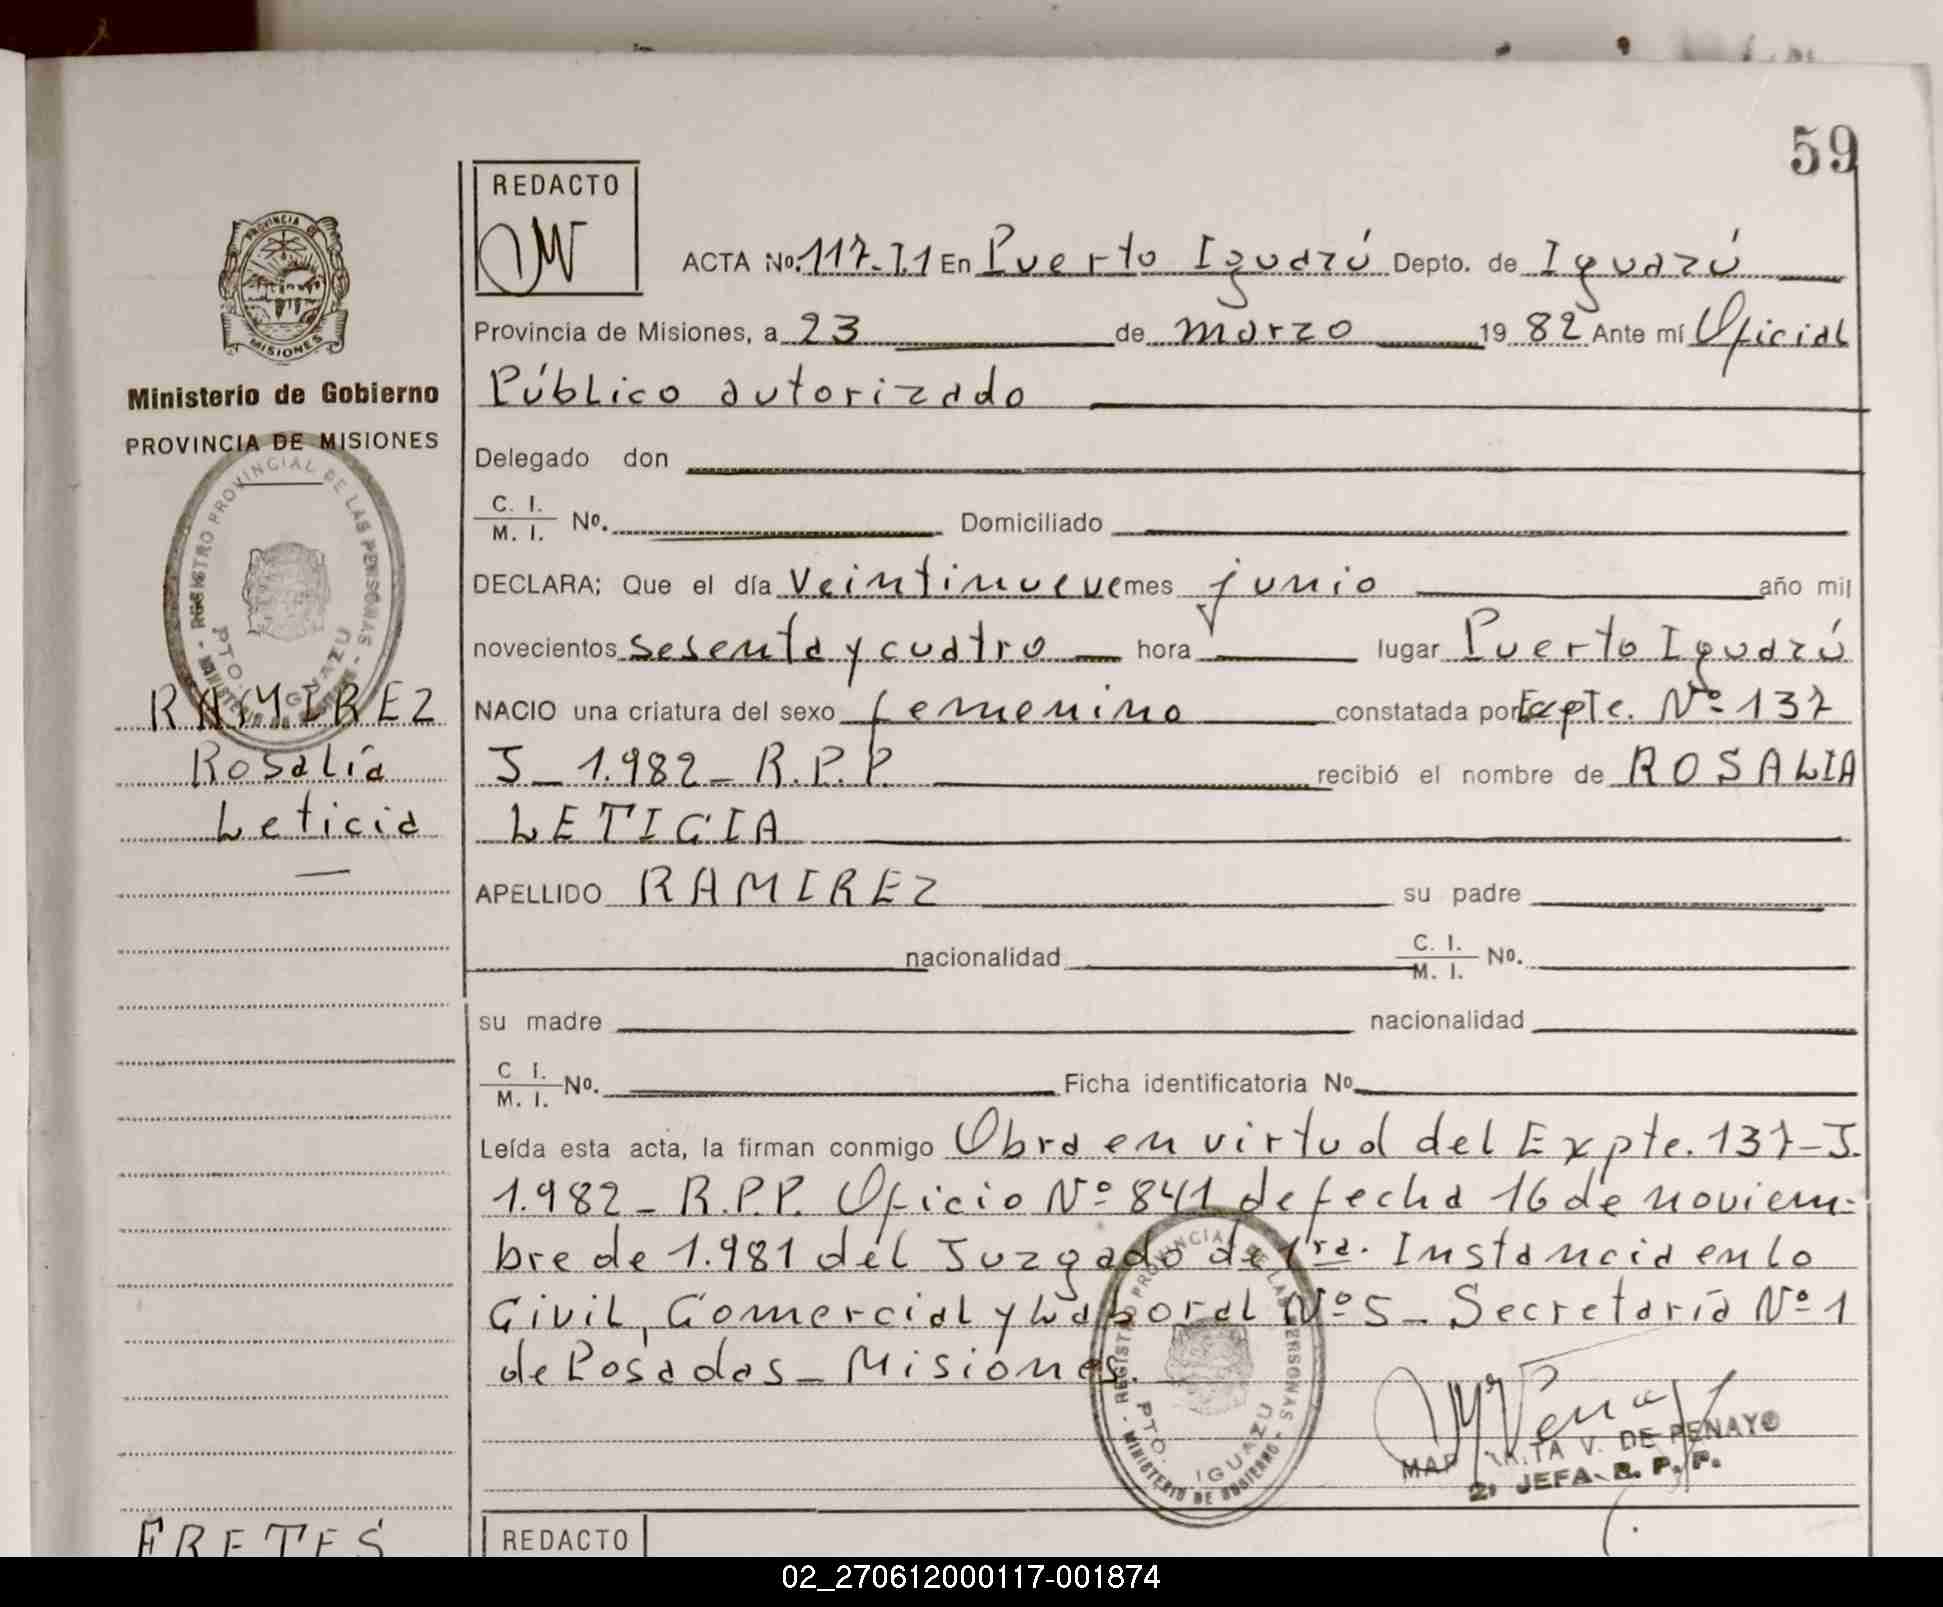 59
REDACTO
ACTA Nº. 117-T.1 En Puerto Iguazú Depto. de Iguazú
PROVINCIA DE
MISIONES
Provincia de Misiones, a 23 de marzo 1982 Ante mí Oficial
Ministerio de Gobierno
Público autorizado
PROVINCIA DE MISIONES
Delegado don
C. I.
M. I. Nº. Domiciliado
REGISTRO PROVINCIAL DE LAS PERSONAS
PTO. IGUAZU
MINISTERIO DE GOBIERNO
DECLARA; Que el día veintinueve mes junio año mil
novecientos sesenta y cuatro hora lugar Puerto Iguazú
RAMIREZ
NACIO una criatura del sexo femenino constatada por Expte. Nº 137
Rosalía
J_1.982_R.P.P. recibió el nombre de ROSALIA
Leticia
LETICIA
APELLIDO RAMIREZ su padre
nacionalidad C. I.
M. I. Nº.
su madre nacionalidad
C I.
M. I. Nº. Ficha identificatoria Nº
Leída esta acta, la firman conmigo Obra en virtud del Expte. 137-J.
1.982_R.P.P. Oficio Nº 841 de fecha 16 de noviem-
bre de 1.981 del Juzgado de 1ra. Instancia en lo
Civil, Comercial y Laboral Nº 5_ Secretaría Nº 1
de Posadas_ Misiones.
REGISTRO PROVINCIAL DE LAS PERSONAS
PTO. IGUAZU
MINISTERIO DE GOBIERNO
V. DE PENAYO
JEFA R. P. P.
FRETES
REDACTO
02_270612000117-001874